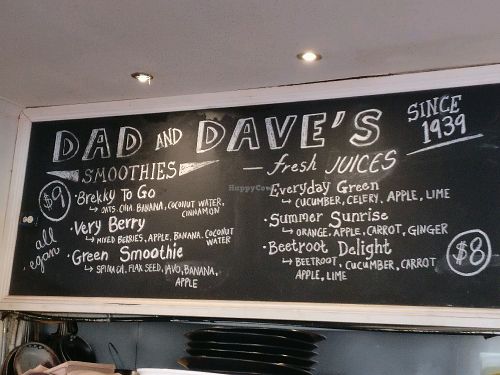 DAD AND DAVE'S
SINCE 1939
SMOOTHIES
$9
Brekky To Go
OATS, CHIA, BANANA, COCONUT WATER,
CINNAMON
Very Berry
MIXED BERRIES, APPLE, BANANA, COCONUT
WATER
Green Smoothie
SPINACH, FLAX SEED, AVO, BANANA,
APPLE
all
egan
fresh JUICES
Everyday Green
CUCUMBER, CELERY, APPLE, LIME
Summer Sunrise
ORANGE, APPLE, CARROT, GINGER
Beetroot Delight
BEETROOT, CUCUMBER, CARROT
APPLE, LIME
$8
HappyCow